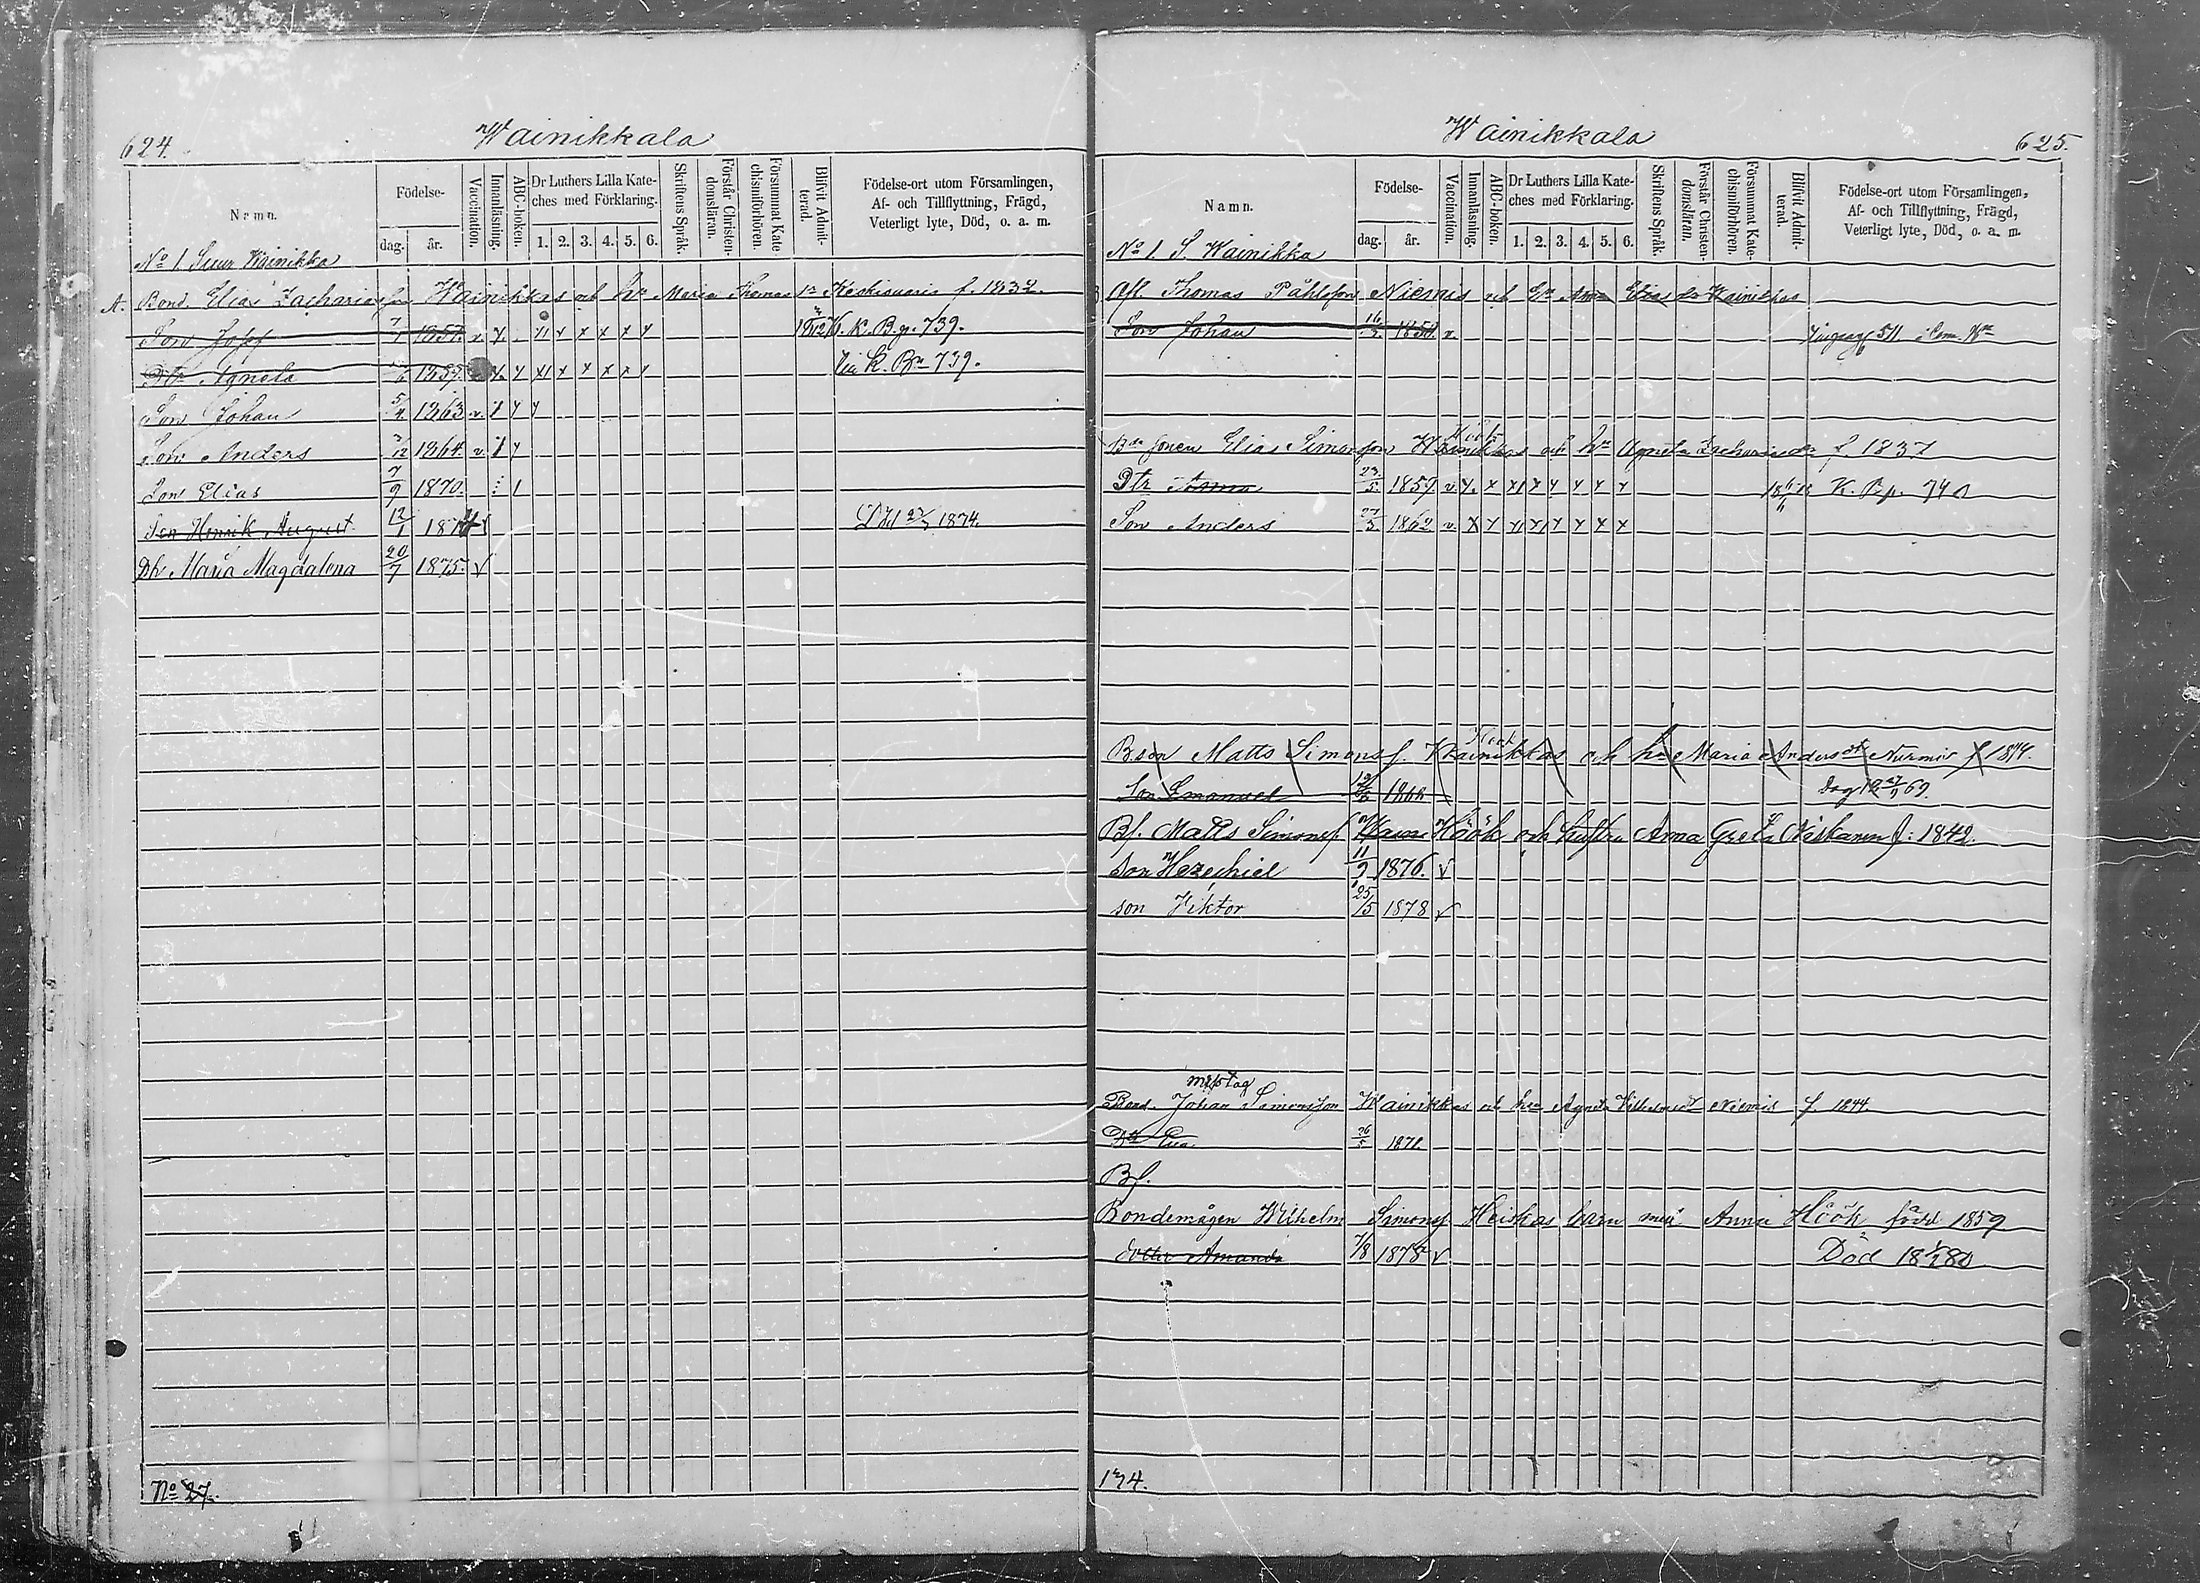 624.
Wainikkala
Namn.
Födelse-
dag.
år.
Vaccination.
Innanläsning.
ABC-boken.
Dr Luthers Lilla Kate-
ches med Förklaring.
1. 2. 3. 4. 5. 6.
Skriftens Språk.
Förstår Christen-
domsläran.
Försummat Kate-
chismiförhören.
Blifvit Admit-
terad.
Födelse-ort utom Församlingen,
Af- och Tillflyttning, Frägd,
Veterligt lyte, Död, o. a. m.
No 1 Suur Wainikka
A. Bond. Elias Zachariasson Wainikkas och hu Maria Thomas dr Keskisaaris f. 1832.
Son Josef 1857. v. K. B. p. 739.
Dtr Agneta 1859. K. Bn 739.
Son Johan 5/4 1863 v.
Son Anders 1864. v.
Son Elias 7/9 1870.
Son Henrik August 12/1 1874 Död 1874.
Dtr Maria Magdalena 20/7 1875. v
No 27.
Wainikkala
625.
Namn.
Födelse-
dag.
år.
Vaccination.
Innanläsning.
ABC-boken.
Dr Luthers Lilla Kate-
ches med Förklaring.
1. 2. 3. 4. 5. 6.
Skriftens Språk.
Förstår Christen-
domsläran.
Försummat Kate-
chismiförhören.
Blifvit Admit-
terad.
Födelse-ort utom Församlingen,
Af- och Tillflyttning, Frägd,
Veterligt lyte, Död, o. a. m.
No 1. S. Wainikka
Afl. Thomas Påhlsson Niemis och Anna Elias dr Wainikkas
Son Johan 1858. v. 511.
Höök
Elias Simonsson Wainikkas och hu Agneta Zachariædr f. 1837
Dtr Anna 23/5. 1859. v. K. B. p. 740
Son Anders 27/5. 1862. v.
Höök
B.son Matts Simonsf. Wainikkas och hu Maria Andersdr Nurmis f. 18
Son Emanuel 1868 Dog 69.
Bf. Matts Simonsf. Wain Höök och hustru Anna Greta Niskanen f: 1842.
son Hezechiel 11/9 1876. v
son Viktor 25/5 1878 v
misstag
Bond. Johan Simonsson Wainikkas och hu Agneta Vilhelmsdr Niemis f. 1844.
Dtr Eva 26/5 1871.
Bf.
Bondemågen Wilhelm Simonsf Heiskas barn med Anna Höök född 1859
dotter Amanda 7/8 1878 v Död 80
174.